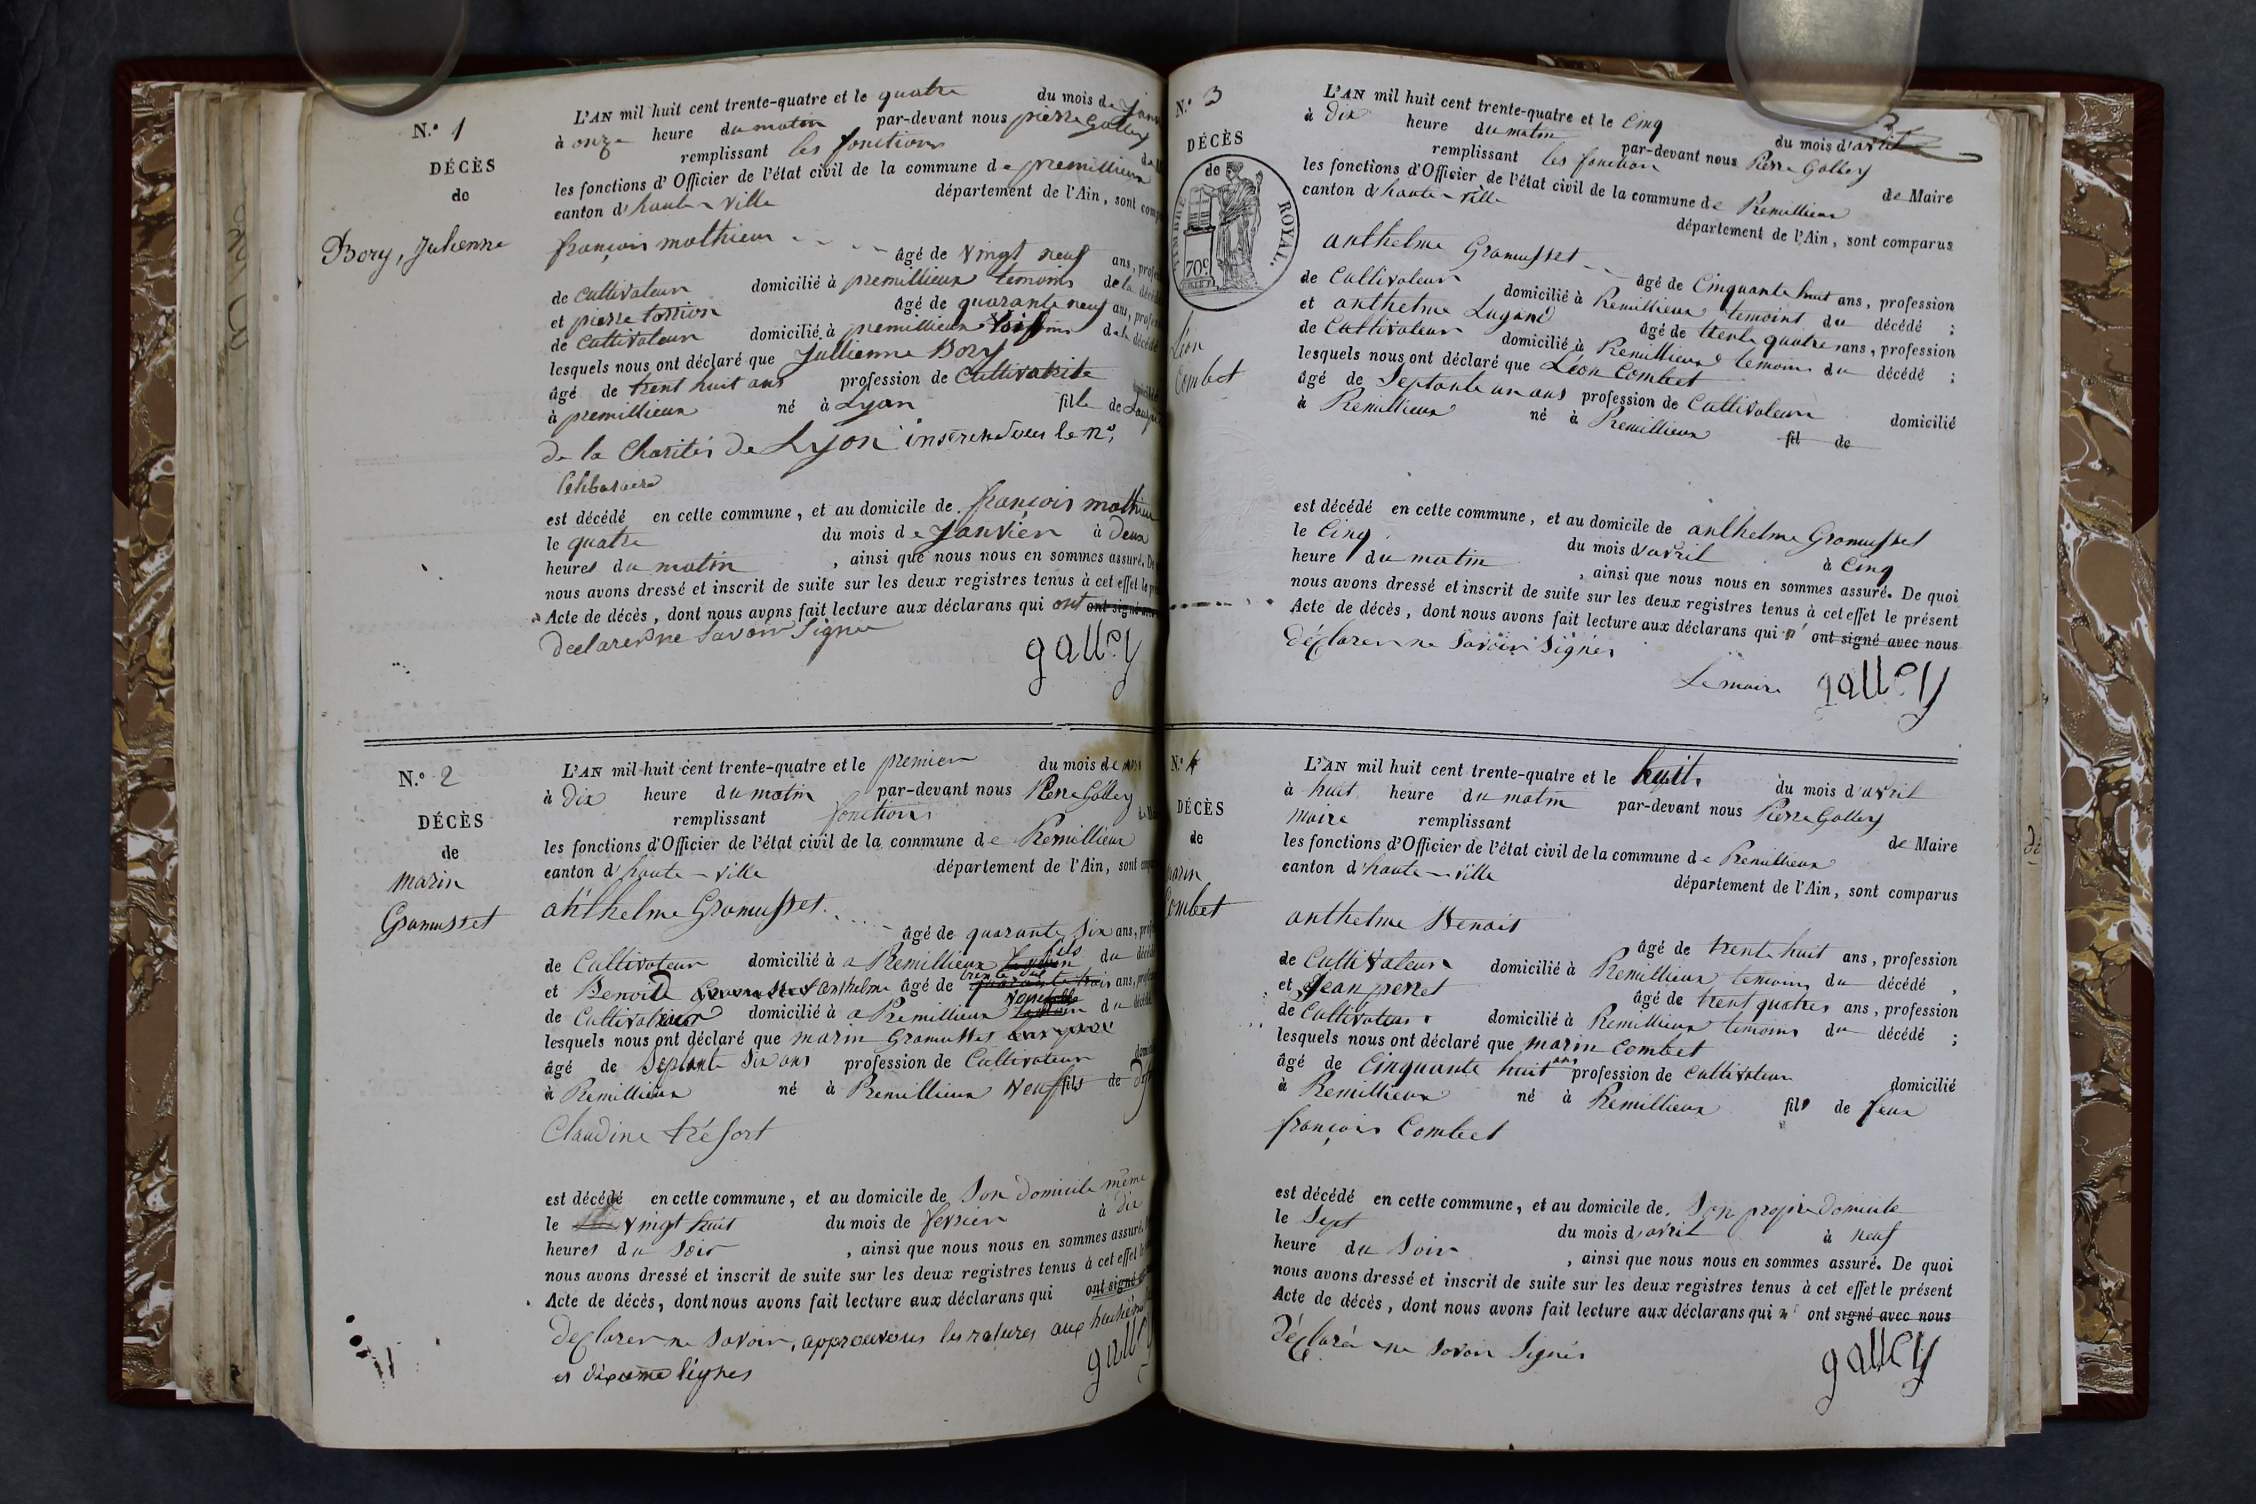 N.o 1
DÉCÈS
de
Bory, Julienne
L'AN mil huit cent trente-quatre et le quatre du mois de
à onze heure du matin par-devant nous pierre Galley
remplissant les fonctions
les fonctions d'Officier de l'état civil de la commune de premillieux
canton d'haute-ville département de l'Ain, sont
françois mathieu
âgé de vingt neuf ans,
de cultivateur domicilié à premillieux temoins de la
et pierre âgé de quarante neuf ans,
de cultivateur domicilié à premillieux de la
lesquels nous ont déclaré que Jullienne Bory
âgé de trent huit ans profession de
à premillieux né à Lyon fille de
de la Charités de Lyon le no,
est décédé en cette commune, et au domicile de françois mathieu
le quatre du mois de Janvier à deux
heures du matin, ainsi que nous nous en sommes assuré.
nous avons dressé et inscrit de suite sur les deux registres tenus à cet effet le
Acte de décès, dont nous avons fait lecture aux déclarans qui ont ont signé
declarer ne savoir signer
galley
N.o 2
DÉCÈS
de
marin
Gramusset
L'AN mil huit cent trente-quatre et le premier du mois de
à dix heure du matin par-devant nous Pierre Galley
remplissant fonctions
les fonctions d'Officier de l'état civil de la commune de Premillieux
canton d'haute-ville département de l'Ain, sont
anthelme Gramusset
âgé de quarante six ans,
de Cultivateur domicilié à a Premillieux fils du
et Benoit anthelme âgé de ans,
de Cultivateur domicilié à a Premillieux du
lesquels nous ont déclaré que marin Gramusset
âgé de Septante Six ans profession de Cultivateur
à Premillieux né à Premillieux fils de
Claudine tréfort
est décédé en cette commune, et au domicile de Son domicile même
le vingt huit du mois de fevrier à dix
heures du Soir, ainsi que nous nous en sommes assuré.
nous avons dressé et inscrit de suite sur les deux registres tenus à cet effet
Acte de décès, dont nous avons fait lecture aux déclarans qui ont signé
declarer ne savoir, approuvons les ratures aux
et dixieme lignes
galley
N.o 3
DÉCÈS
de
TIMBRE ROYAL.
70c
Léon
Combet
L'AN mil huit cent trente-quatre et le Cinq du mois d'avril
à dix heure du matin par-devant nous Pierre Galley
remplissant les fonction de Maire
les fonctions d'Officier de l'état civil de la commune de Premillieux
canton d'haute-ville département de l'Ain, sont comparus
anthelme Gramusset
âgé de Cinquante huit ans, profession
de Cultivateur domicilié à Premillieux temoins du décédé ;
et anthelme Lugand âgé de trente quatre ans, profession
de Cultivateur domicilié à Premillieux temoins du décédé ;
lesquels nous ont déclaré que Léon Combet
âgé de Septante un ans profession de Cultivateur domicilié
à Premillieux né à Premillieux fil de
est décédé en cette commune, et au domicile de anthelme Gramusset
le Cinq du mois d'avril à Cinq
heure du matin, ainsi que nous nous en sommes assuré. De quoi
nous avons dressé et inscrit de suite sur les deux registres tenus à cet effet le présent
Acte de décès, dont nous avons fait lecture aux déclarans qui ont signé avec nous
déclarer ne savoir signer
Le maire galley
N.o 4
DÉCÈS
de
marin
Combet
L'AN mil huit cent trente-quatre et le huit. du mois d'avril
à huit heure du matin par-devant nous Pierre Galley
maire remplissant de Maire
les fonctions d'Officier de l'état civil de la commune de Premillieux
canton d'haute-ville département de l'Ain, sont comparus
anthelme Benoit
âgé de trente huit ans, profession
de Cultivateur domicilié à Premillieux temoins du décédé ,
et Jean perret âgé de trent quatre ans, profession
de Cultivateur domicilié à Premillieux temoins du décédé ;
lesquels nous ont déclaré que marin Combet
âgé de Cinquante huit ans profession de Cultivateur domicilié
à Premillieux né à Premillieux fils de feux
françois Combet
est décédé en cette commune, et au domicile de Son propre domicile
le Sept du mois d'avril à neuf
heure du Soir, ainsi que nous nous en sommes assuré. De quoi
nous avons dressé et inscrit de suite sur les deux registres tenus à cet effet le présent
Acte de décès, dont nous avons fait lecture aux déclarans qui ont signé avec nous
déclaré ne savoir signer
galley